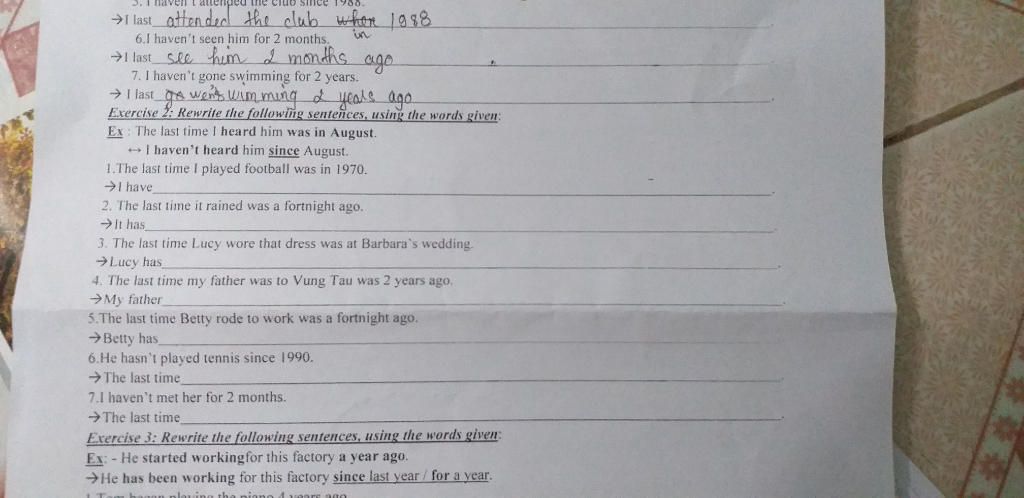 5. I haven't attended the club since 1988.
→I last attended the club when 1988
in
6.I haven't seen him for 2 months.
→I last see him 2 months ago
7. I haven't gone swimming for 2 years.
→ I last go went swimming 2 years ago
Exercise 2: Rewrite the following sentences, using the words given:
Ex : The last time I heard him was in August.
↔ I haven't heard him since August.
1.The last time I played football was in 1970.
→I have
2. The last time it rained was a fortnight ago.
→It has
3. The last time Lucy wore that dress was at Barbara's wedding.
→Lucy has
4. The last time my father was to Vung Tau was 2 years ago.
→My father
5.The last time Betty rode to work was a fortnight ago.
→Betty has
6.He hasn't played tennis since 1990.
→The last time
7.I haven't met her for 2 months.
→The last time
Exercise 3: Rewrite the following sentences, using the words given:
Ex: - He started workingfor this factory a year ago.
→He has been working for this factory since last year / for a year.
1.Tom began playing the piano 4 years ago